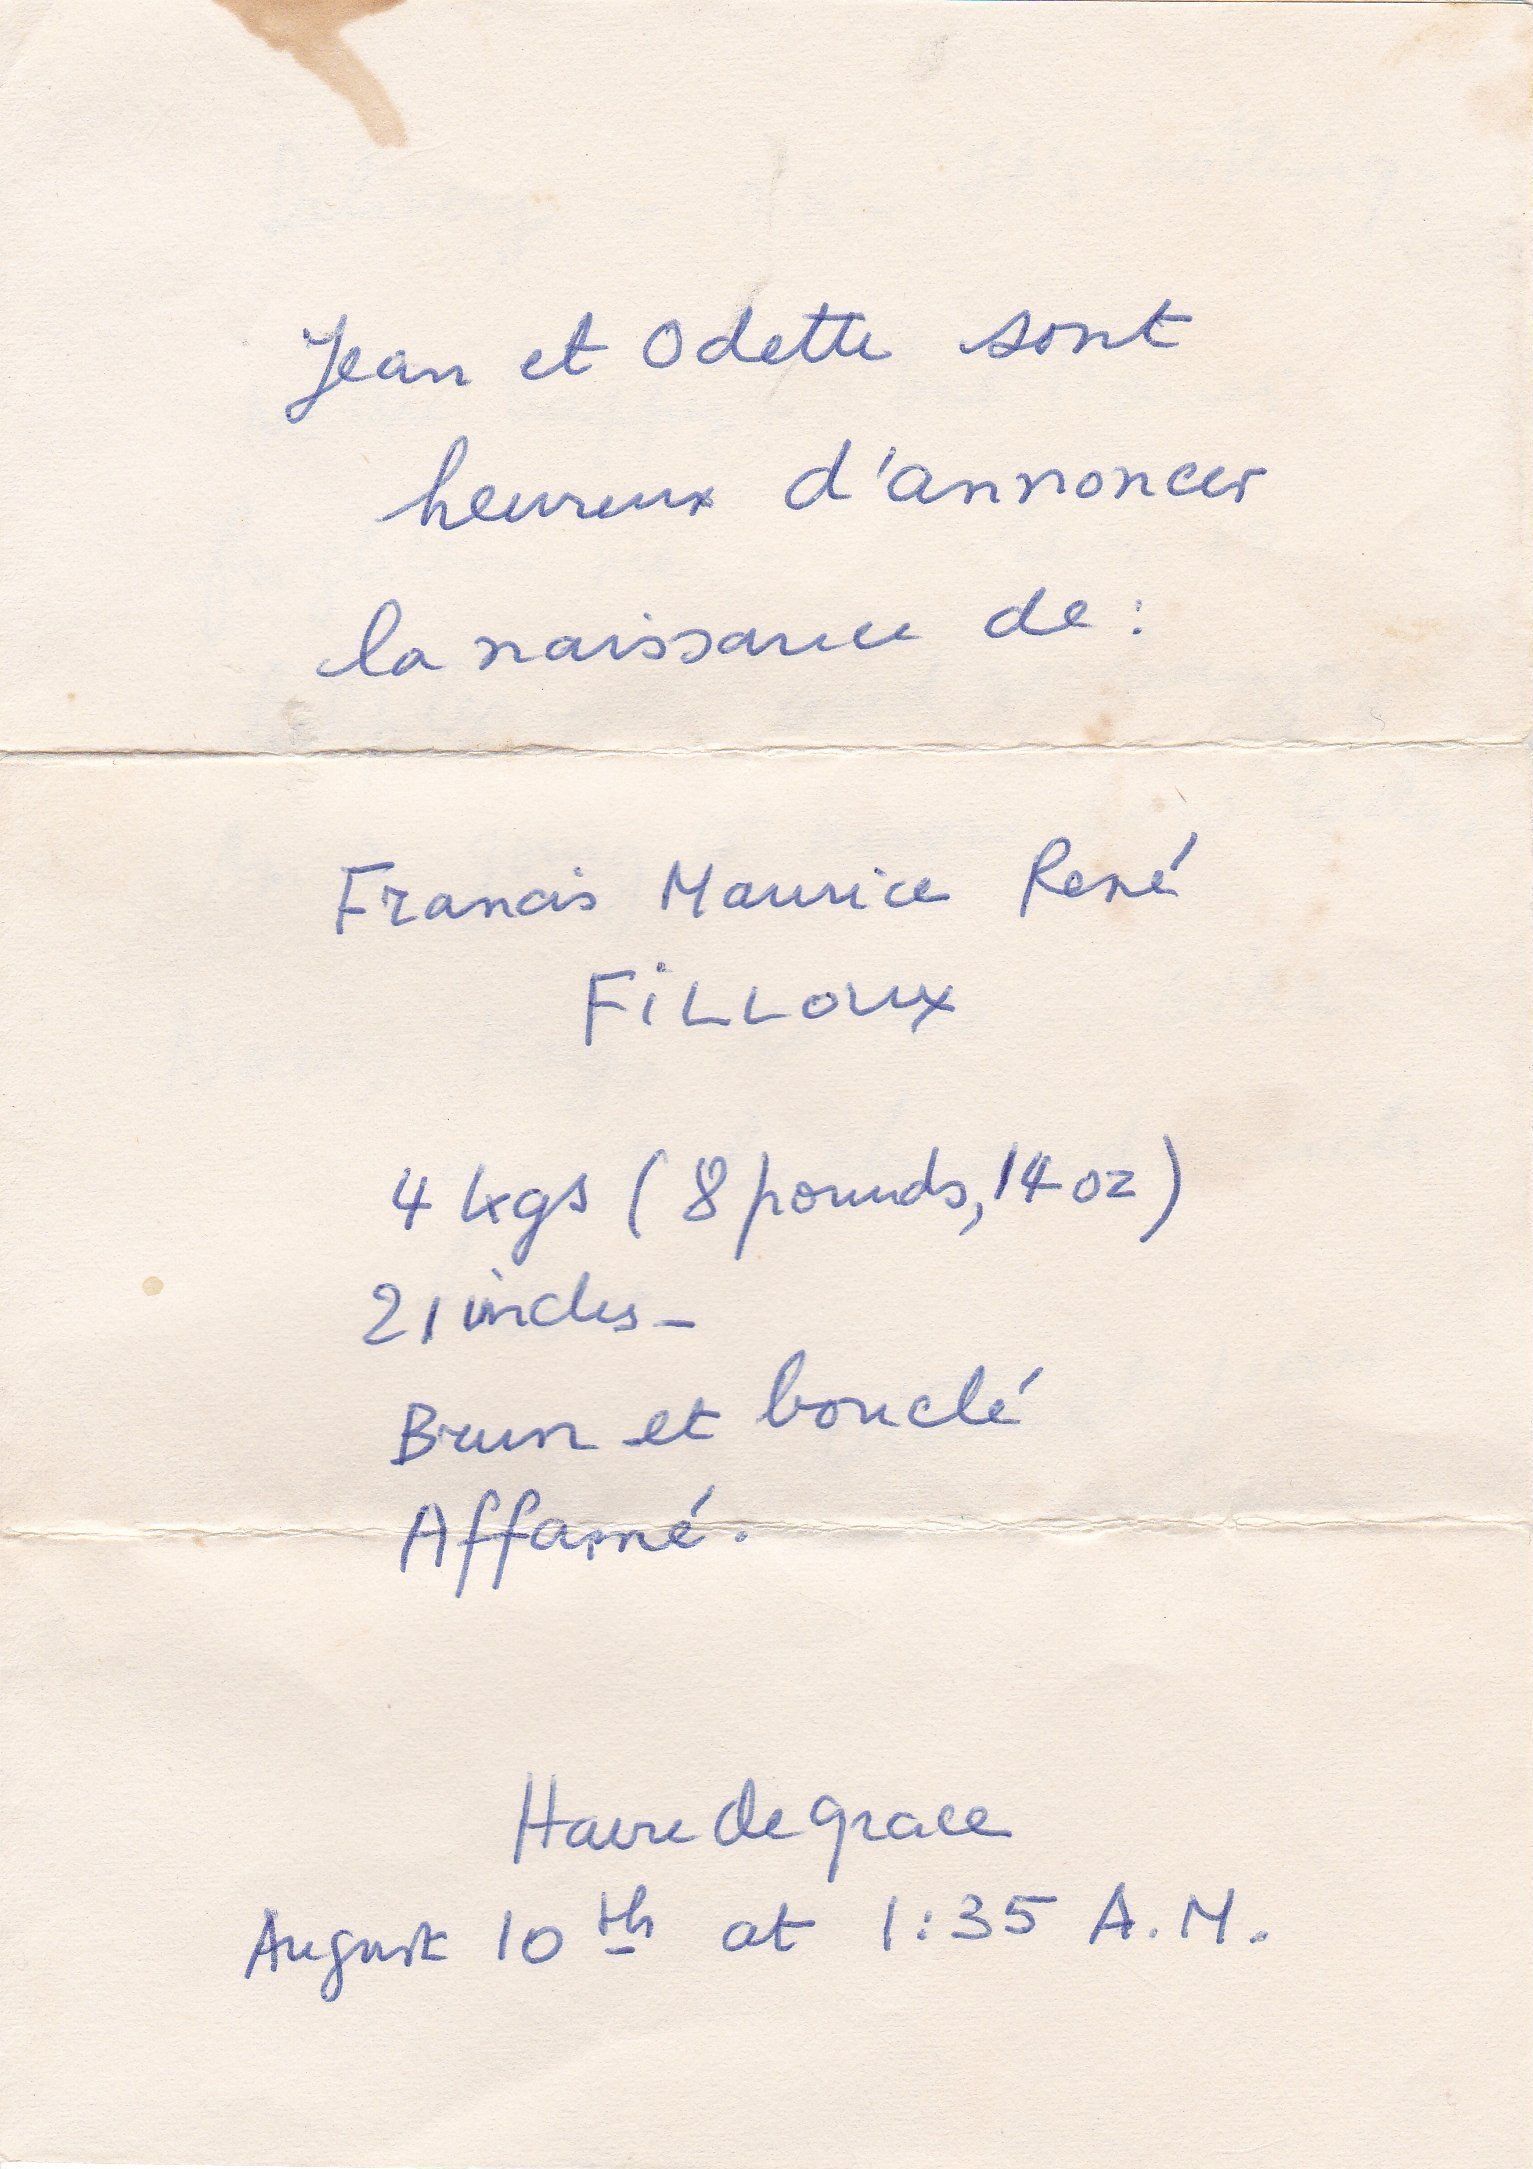 Jean et Odette sont
heureux d'annoncer
la naissance de :
Francis Maurice René
FiLLoux
4 kgs (8 pounds, 14 oz)
21 inches -
Brun et bouclé
Affamé.
Havre de grace
August 10th at 1:35 A.M.